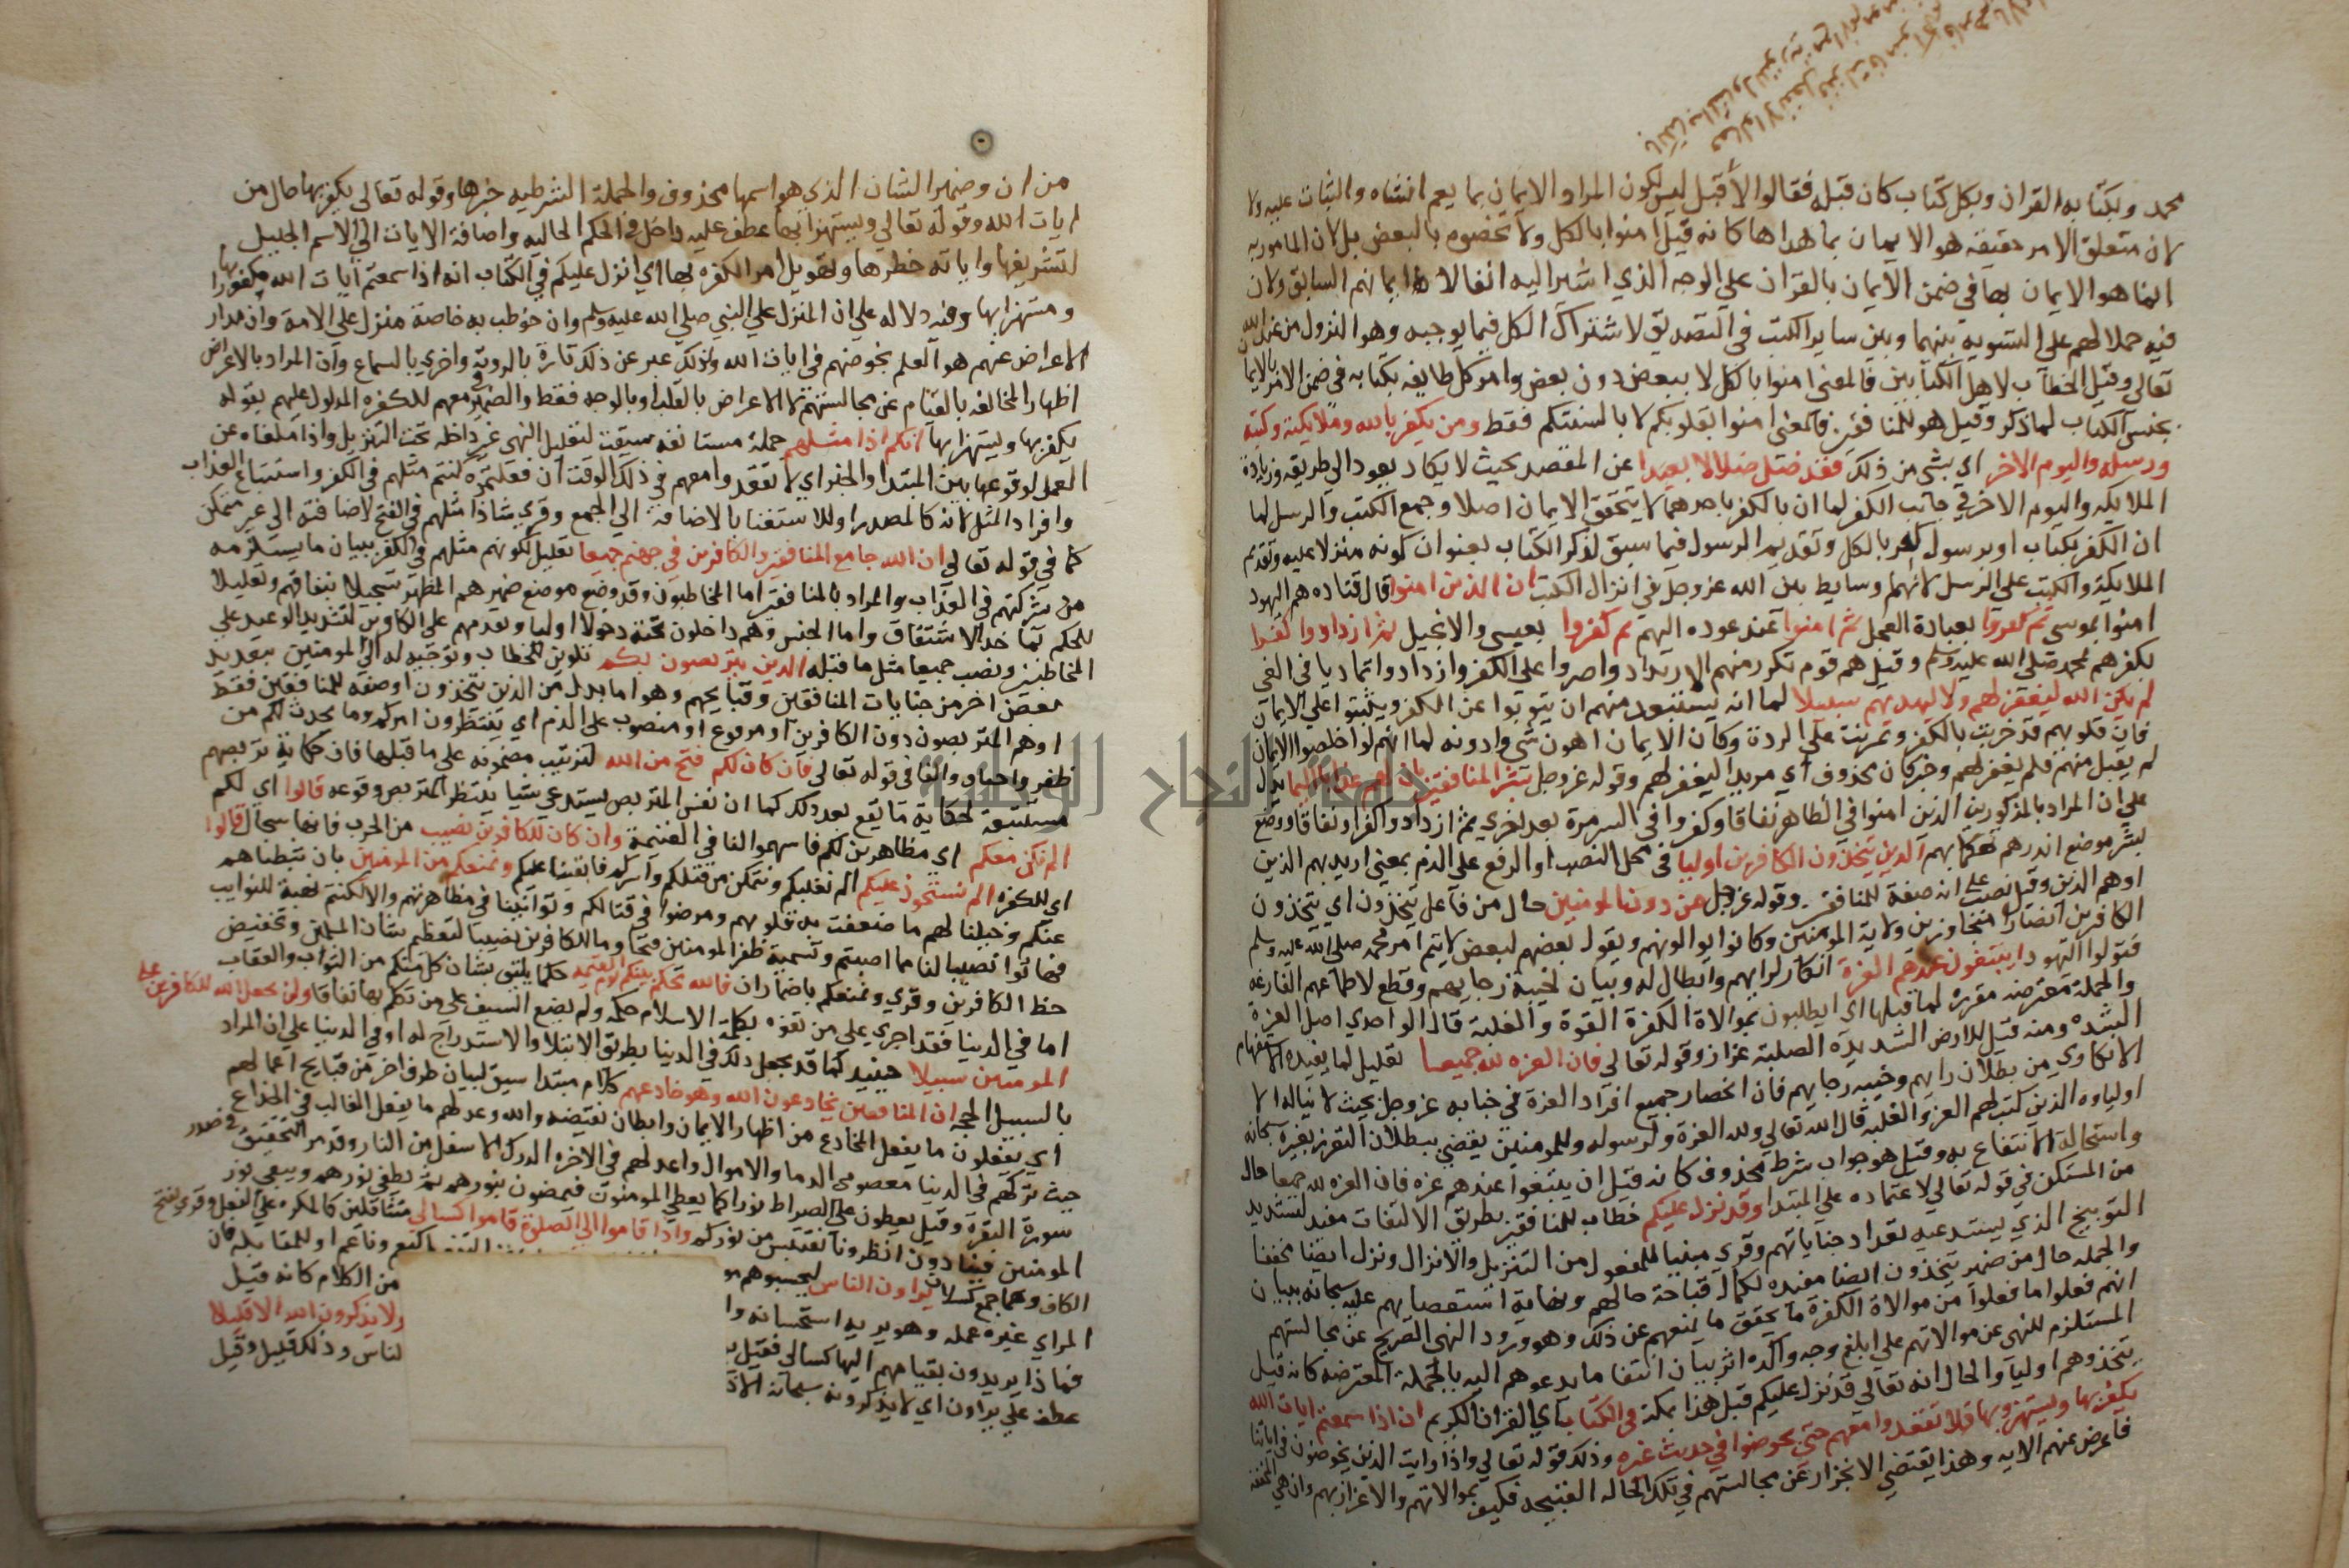 محمد وبكتابه القران وبكل كتاب كان قبله فقالوا لا قبل ليس لكون المراد والايمان بما يعم انشاه والثبات عليه ولا
لان متعلق الامر حقيقة هو الايمان بما هداها كانه قيل امنوا بالكل ولا تخصوه بالبعض بل لان المامور به
انما هو الايمان بها في ضمن الايمان بالقران علي الوجه الذي اشير اليه انفا لا ايمانهم السابق ولان
فيه حملا لهم علي التسوية بينهما وبين ساير الكتب في التصديق لاشتراك الكل فيما يوجبه وهو النزول من عند الله
تعالي وقيل الخطاب لاهل الكتابين فالمعني امنوا بالكل لا ببعض دون بعض وامر كل طايفه بكتابه في ضمن الامر بالايمان
بجنس الكتاب لما ذكر وقيل هو للمنافقين فالمعني امنوا بقلوبكم لا بالسنتكم فقط ومن يكفر بالله وملايكته وكتبه
ورسله واليوم الاخر اي بشي من ذلك فقد ضل ضلالا بعيدا عن المقصد بحيث لا يكاد يعود الي طريقه وزيادة
الملايكه واليوم الاخر في جانب الكفر لما ان بالكفر باحدهما لا يتحقق الايمان اصلا وجمع الكتب والرسل لما
ان الكفر بكتاب او برسول كفر بالكل وتقديم الرسول فيما سبق لذكر الكتاب بعنوان كونه منزلا عليه وتقديم
الملايكة والكتب علي الرسل لانهم وسايط بين الله عز وجل في انزال الكتب ان الذين امنوا قال قتاده هم اليهود
امنوا بموسي ثم كفروا بعبادة العجل ثم امنوا عند عوده اليهم ثم كفروا بعيسي والانجيل ثم ازدادوا كفرا
بكفرهم بمحمد صلي الله عليه وسلم وقيل هم قوم تكرر منهم الارتداد واصروا علي الكفر وازدادوا تماديا في الغي
لم يكن الله ليغفر لهم ولا ليهديهم سبيلا لما انه يستبعد منهم ان يتوبوا عن الكفر ويثبتوا علي الايمان
فان قلوبهم قد ضربت بالكفر وتمرنت علي الردة وكان الايمان اهون شي وادونه لما انهم لو اخلصوا الايمان
لم يقبل منهم فلم يغفر لهم وخبر كان محذوف اي مريدا ليغفر لهم وقوله عز وجل بشر المنافقين بان لهم عذابا اليما يدل
علي ان المراد بالمذكورين الذين امنوا في الظاهر نفاقا وكفروا في السر مرة بعد اخري ثم ازدادوا كفرا ونفاقا ووضع
بشر موضع انذرهم تهكما بهم الذين يتخذون الكافرين اوليا في محل النصب او الرفع علي الذم بمعني اريد بهم الذين
اوهم الذين وقيل نصب علي انه صفة للمنافقين وقوله عز وجل من دون المومنين حال من فاعل يتخذون اي يتخذون
الكافرين انصارا متجاوزين ولاية المومنين وكانوا يوالونهم ويقول بعضهم لبعض لا يتم امر محمد صلي الله عليه وسلم
فتولوا اليهود ايبتغون عندهم العزة انكار لرايهم وابطال له وبيان لخيبة رجايهم وقطع لاطماعهم الفارغه
والجملة معترضه مقرره لما قبلها اي ايطلبون بموالاة الكفرة القوة والغلبة قال الواحدي اصل العزة
الشده ومنه قيل للارض الشديده الصلبة عزاز وقوله تعالي فان العزه لله جميعا تعليل لما يفيده الاستفهام
الانكاري من بطلان رايهم وخيبه رجايهم فان انحصار جميع افراد العزة في جنابه عز وجل بحيث لا ينالها الا
اولياوه الذين كتب لهم العز والغلبه قال الله تعالي ولله العزة ولرسوله وللمومنين يقضي ببطلان التعزز بغيره سبحانه
واستحالة الانتفاع به وقيل هو جواب شرط محذوف كانه قيل ان يبتغوا عندهم عزه فان العزه لله جميعا حال
من المستكن في قوله تعالي لاعتماده علي المبتدا وقد نزل عليكم خطاب للمنافقين بطريق الالتفات مفيد لتشديد
التوبيخ الذي يستدعيه تعداد جناياتهم وقري مبنيا للمفعول من التنزيل والانزال ونزل ايضا مخففا
والجمله حال من ضمير يتخذون ايضا مفيده لكمال قباحة حالهم ونهاية استعصايهم عليه سبحانه ببيان
انهم فعلوا ما فعلوا من موالاة الكفرة ما يحقق ما يمنعهم عن ذلك وهو ورود النهي الصريح عن مجالستهم
المستلزم للنهي عن موالاتهم علي ابلغ وجه واكده اثر بيان انتفا ما يدعوهم اليه بالجملة المعترضه كانه قيل
يتخذوهم اوليا والحال انه تعالي قد نزل عليكم قبل هذا بمكة في الكتاب اي القران الكريم ان اذا سمعتم ايات الله
يكفر بها ويستهزي بها فلا تقعدوا معهم حتي يخوضوا في حديث غيره وذلك قوله تعالي واذا رايت الذين يخوضون في اياتنا
فاعرض عنهم الايه وهذا يقتضي الانجزار عن مجالستهم في تلك الحالة القبيحه فكيف بموالاتهم والاعتزاز بهم وان هي المخففه
من ان وضمير الشان الذي هو اسمها محذوف والجملة الشرطيه خبرها وقوله تعالي يكفر بها حال من
ايات الله وقوله تعالي ويستهزا بها عطف عليه داخل في الحكم الحاليه واضافة الايات الي الاسم الجليل
لتشريفها وابانة خطرها وتهويل امر الكفره بها اي نزل عليكم في الكتاب انه اذا سمعتم ايات الله مكفورا بها
ومستهزا بها وفيه دلاله علي ان المنزل علي النبي صلي الله عليه وسلم وان خوطب به خاصة منزل علي الامة وان مدار
الاعراض عنهم هو العلم بخوضهم في ايات الله ولذلك عبر عن ذلك تارة بالروية واخري بالسماع وان المراد بالاعراض
اظهار المخالفه بالقيام عن مجالستهم لا الاعراض بالقلب او بالوجه فقط والضمير في معهم للكفره المدلول عليهم بقوله
يكفر بها ويستهزا بها انكم اذا مثلهم جملة مستانفه سيقت لتعليل النهي غير داخله تحت التنزيل واذا ملغاه عن
العمل لوقوعها بين المبتدا والخبر اي لا تقعدوا معهم في ذلك الوقت ان فعلتموه كنتم مثلهم في الكفر واستتباع العذاب
وافراد المثل لانه كالمصدر او للاستغنا بالاضافة الي الجمع وقري شاذا مثلهم في الفتح لاضافته الي غير متمكن
كما في قوله تعالي ان الله جامع المنافقين والكافرين في جهنم جميعا تعليل لكونهم مثلهم في الكفر ببيان ما يستلزمه
من شركتهم في العذاب والمراد بالمنافقين اما المخاطبون وقد وضع موضع ضميرهم المظهر تسجيلا بنفاقهم وتعليلا
للحكم بماخذ الاشتقاق واما الجنس وهم داخلون تحته دخولا اوليا وتقديمهم علي الكافرين لتشديد الوعيد علي
المخاطبين ونصب جميعا مثل ما قبله الذين يتربصون بكم تلوين للخطاب وتوجيه له الي المومنين بتعديد
بعض اخر من جنايات المنافقين وقبايحهم وهو اما بدل من الذين يتخذون او صفه للمنافقين فقط
اوهم المتربصون دون الكافرين او مرفوع او منصوب علي الذم اي ينتظرون امركم وما يحدث لكم من
ظفر واخفاق والفا في قوله تعالي فان كان لكم فتح من الله لترتيب مضمونه علي ما قبلها فان حكاية تربصهم
مستتبعة لحكاية ما يقع بعد ذلك كما ان نفس المتربص يستدعي شيا ينتظر المتربص وقوعه قالوا اي لكم
الم نكن معكم اي مظاهرين لكم فاسهموا لنا في الغنيمة وان كان للكافرين نصيب من الحرب فانها سجال قالوا
اي للكفره الم نستحوذ عليكم الم نغلبكم ونتمكن من قتلكم واسركم فابقينا عليكم ونمنعكم من المومنين بان ثبطناهم
عنكم وخيلنا لهم ما ضعفت به قلوبهم ومرضوا في قتالكم وتوانينا في مظاهرتهم والا لكنتم نهبة للنوايب
فهاتوا نصيبا لنا مما اصبتم وتسمية ظفر المومنين فتحا وما للكافرين نصيبا لتعظيم شان المسلمين وتخفيض
حظ الكافرين وقري ونمنعكم باضمار ان فالله يحكم بينكم يوم القيمة حكما يليق بشان كل منكم من الثواب والعقاب
اما في الدنيا فقد اجري علي من تفوه بكلمة الاسلام حكمه ولم يضع السيف علي من تكلم بها نفاقا ولن يجعل الله للكافرين علي
المومنين سبيلا حينيذ كما قد يجعل ذلك في الدنيا بطريق الابتلا والاستدراج له او في الدنيا علي ان المراد
بالسبيل الحجه ان المنافقين يخادعون الله وهو خادعهم كلام مبتدا سيق لبيان طرف اخر من قبايح اعمالهم
اي يفعلون ما يفعل المخادع من اظهار الايمان وابطان نقيضه والله وعد لهم ما يفعل الغالب في الخداع
حيث تركهم في الدنيا معصومي الدما والاموال واعد لهم في الاخره الدرك الاسفل من النار وقد مر التحقيق في صدر
سورة البقره وقيل يعطون علي الصراط نورا كما يعطي المومنون فيمضون بنورهم ثم يطفي نورهم ويبقي نور
المومنين فينادون انظرونا نقتبس من نوركم واذا قاموا الي الصلوة قاموا كسالي متثاقلين كالمكره علي الفعل وقري بفتح
الكاف وهما جمع كسلان يراون الناس ليحسبوهم مو
المراي غيره عمله وهو يريه استحسانه وا
من الكلام كانه قيل
فماذا يريدون بقيامهم اليها كسالي فقيل ير
ولا يذكرون الله الا قليلا
عطف علي يراون اي لا يذكرونه سبحانه الا ذ
لناس وذلك قليل وقيل
جامعة النجاح الوطنية